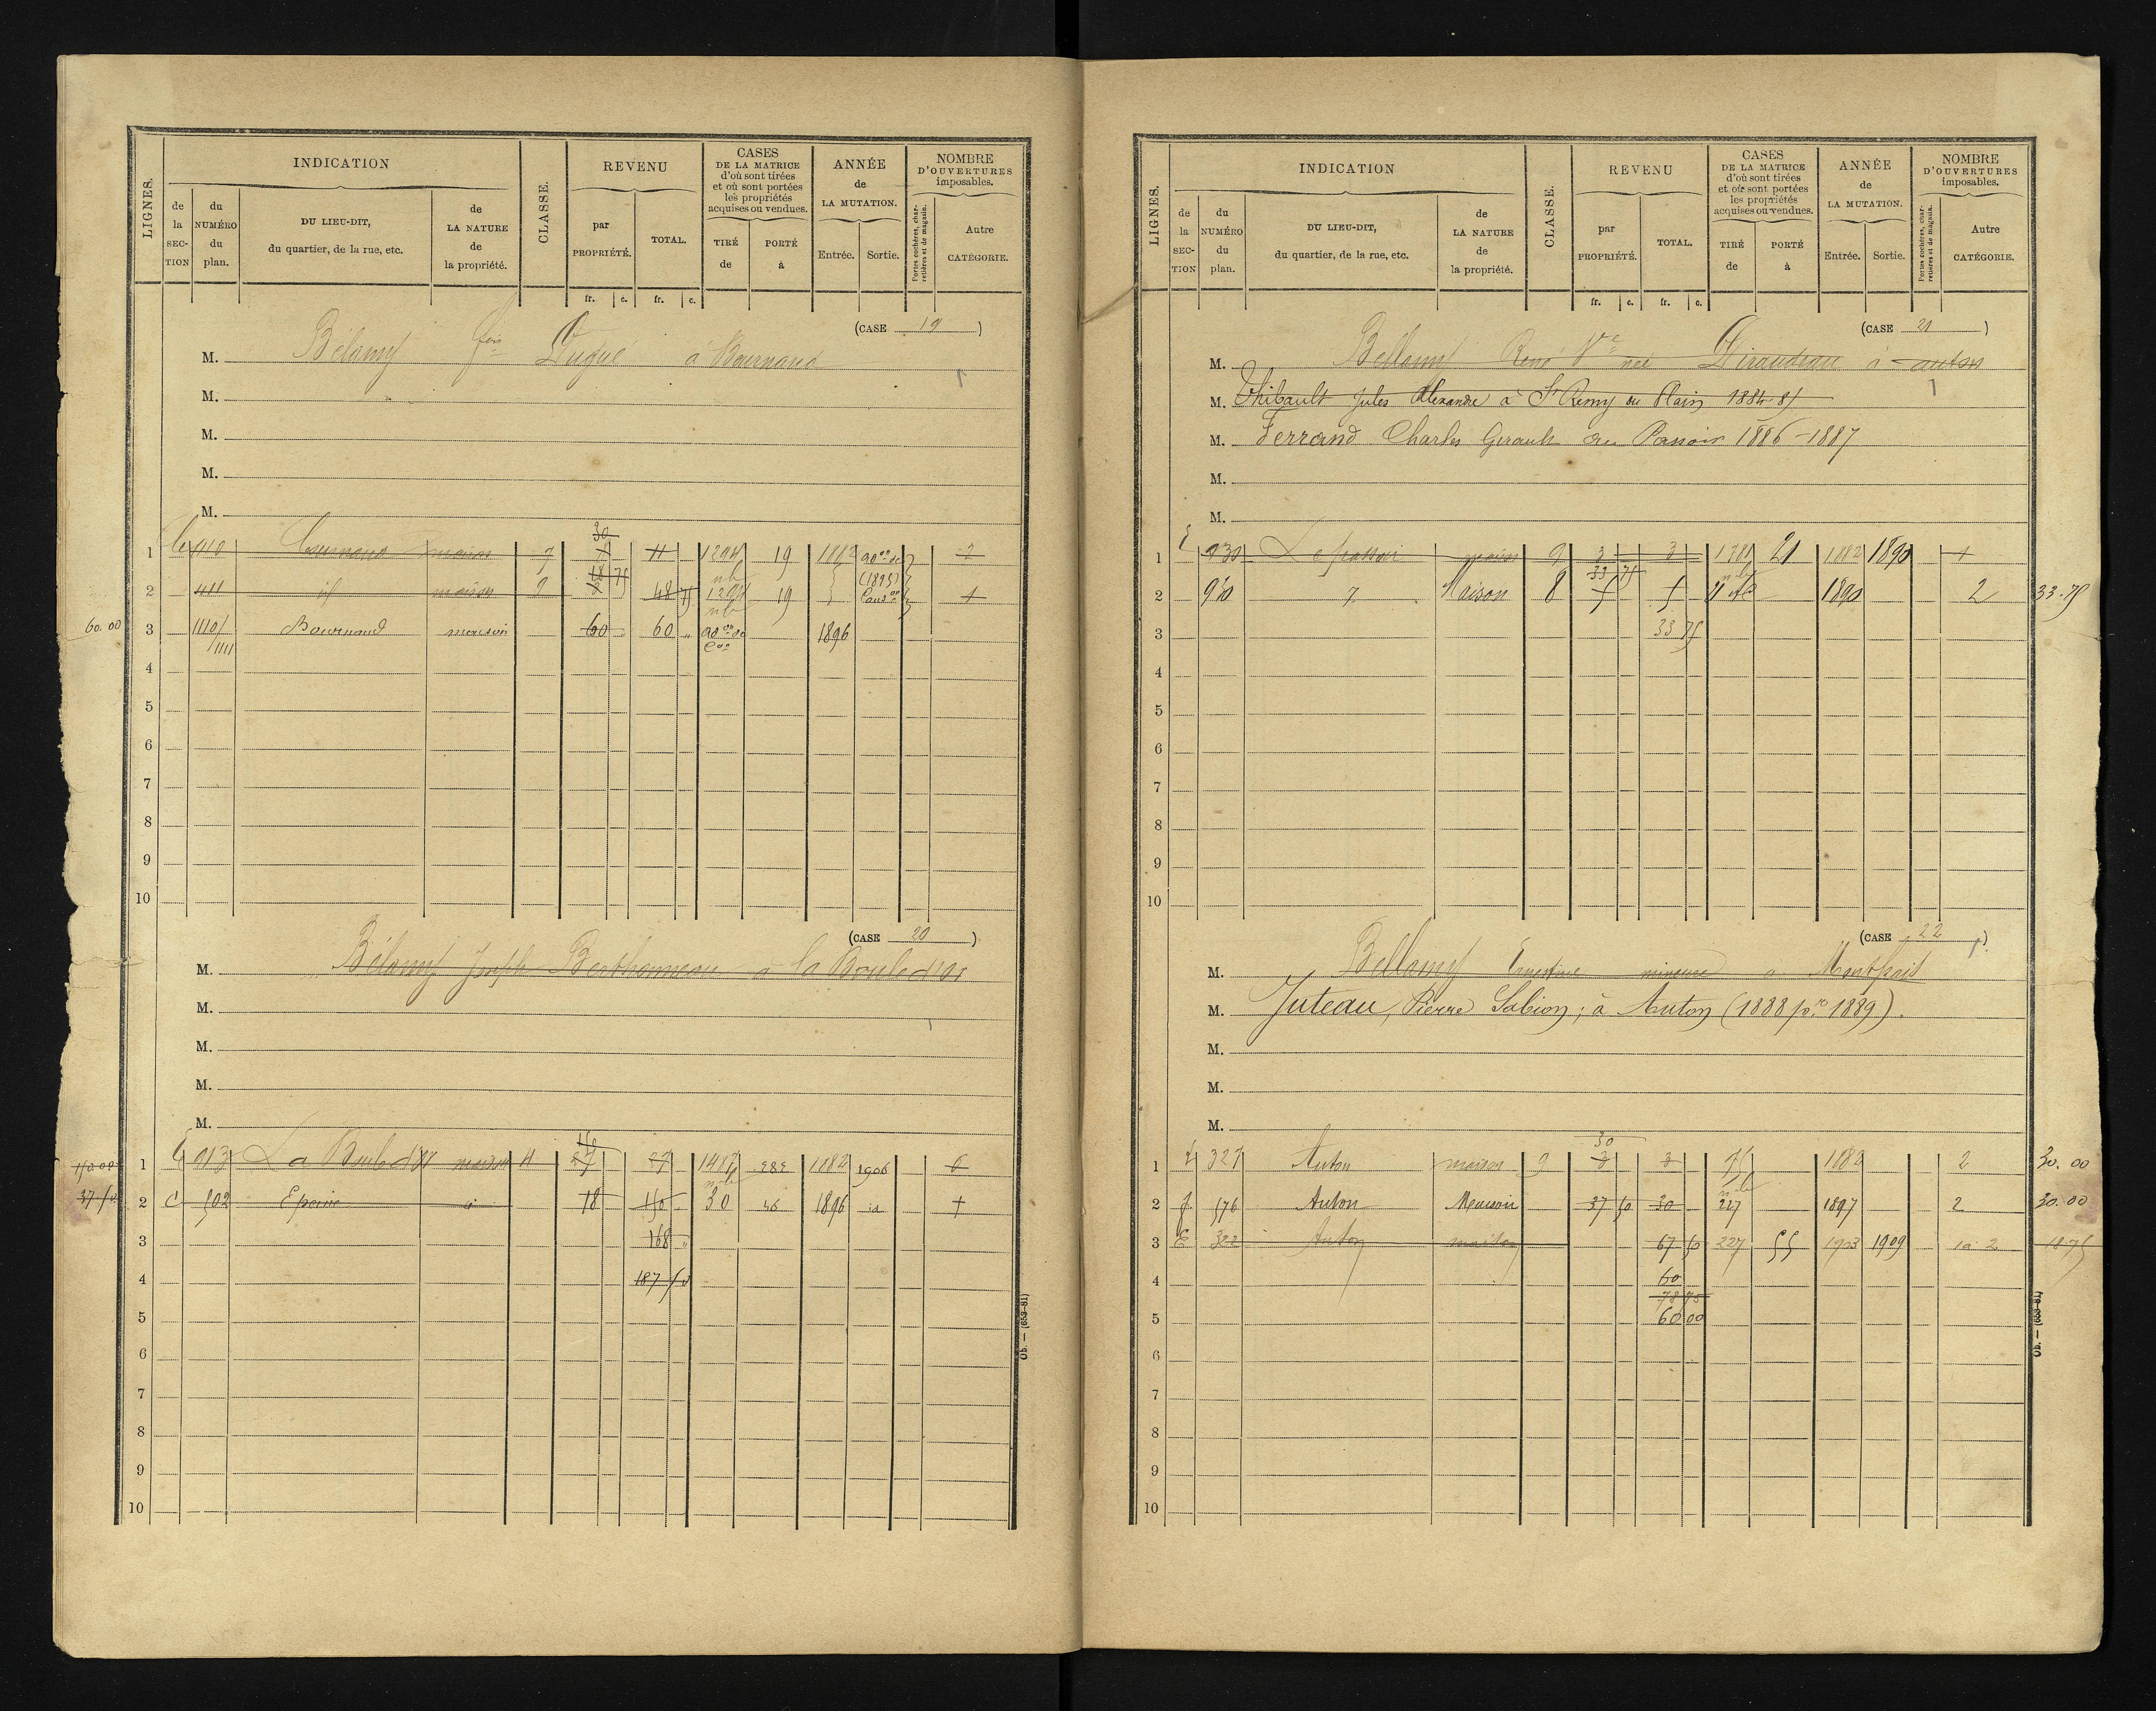 LIGNES. INDICATION CLASSE. REVENU CASES DE LA MATRICE d'où sont tirées et où sont portées les propriétés acquises ou vendues. ANNÉE de LA MUTATION. NOMBRE D'OUVERTURES imposables.
de la SECTION du NUMÉRO du plan. DU LIEU-DIT, du quartier, de la rue, etc. de LA NATURE de la propriété. par PROPRIÉTÉ. TOTAL. TIRÉ de PORTÉ à Entrée. Sortie. Portes cochères, charretières et de magasin. Autre CATÉGORIE.
fr. c. fr. c.
(CASE 19)
M. Bélamy fois Dugué à Bournand
M.
M.
M.
M.
30
1 410 Bournand maison 7 11 1294 19 1882 2
18 75
2 411 id maison 9 48 75 1294 19 (1895) 1
60.00 3 1110/1111 Bournand maison 60 60 " 1896
4
5
6
7
8
9
10
(CASE 20)
M. Bélamy Joseph Berthomeau à la Boule d'or
M.
M.
M.
M.
150
150.00 1 913 La Boule d'or maison 4 27 27 1487 282 1882 1906 6
37.50 2 C 502 Epaine id 18 150 30 46 1896 id 1
3 168 "
4 187 50
5
6
7
8
9
10
Ob. — (653-81)
LIGNES. INDICATION CLASSE. REVENU CASES DE LA MATRICE d'où sont tirées et où sont portées les propriétés acquises ou vendues. ANNÉE de LA MUTATION. NOMBRE D'OUVERTURES imposables.
de la SECTION du NUMÉRO du plan. DU LIEU-DIT, du quartier, de la rue, etc. de LA NATURE de la propriété. par PROPRIÉTÉ. TOTAL. TIRÉ de PORTÉ à Entrée. Sortie. Portes cochères, charretières et de magasin. Autre CATÉGORIE.
fr. c. fr. c.
(CASE 21)
M. Bellamy René Ve née Giraudeau à Anton
M. Thibault Jules Alexandre à St Remy en Plain 1884-85
M. Ferrand Charles Girault au Passoir 1886-1887
M.
M.
1 930 Le passoir maison 9 3 3 1381 21 1882 1890 1
33 75
2 930 Maison 8 5 5 1890 2 33.75
3 33 75
4
5
6
7
8
9
10
(CASE 22)
M. Bellamy Ernestine mineure à Montpais
M. Juteau, Pierre Sabion; à Anton (1888 pr 1889).
M.
M.
M.
30
1 327 Anton maison 9 3 3 75 1882 2 30.00
2 f 576 Anton Maison 37 50 30 227 1897 2 30.00
3 E 322 Anton maison 67 50 227 55 1903 1909 2 18.75
4 60
78 75
5 60 00
6
7
8
9
10
Ob. — (653-81)